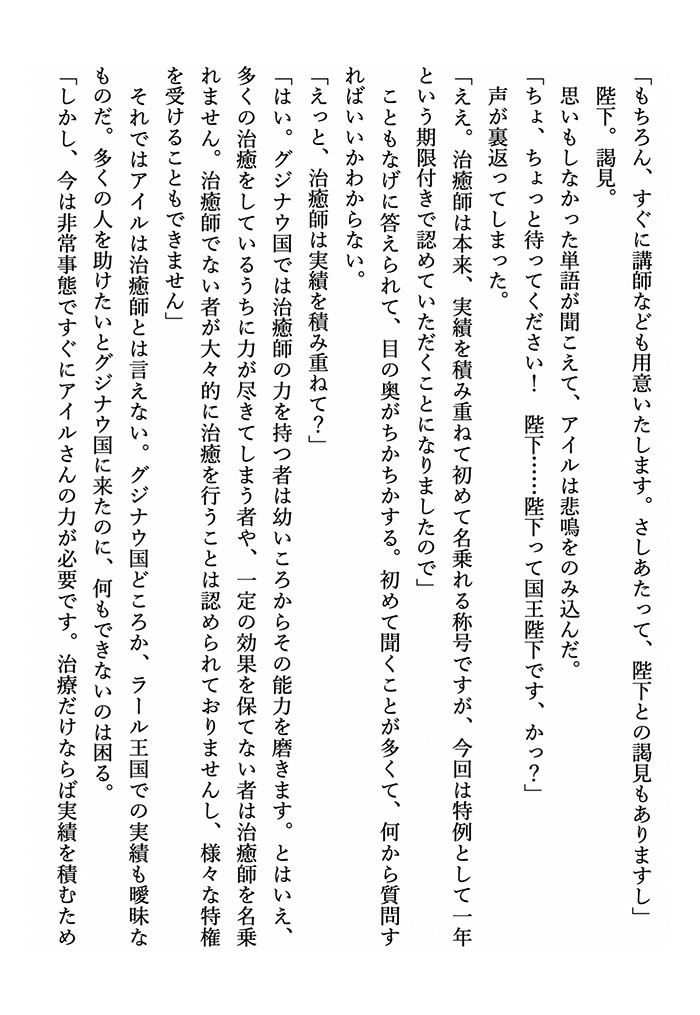 「もちろん、すぐに講師なども用意いたします。さしあたって、陛下との謁見もありますし」
陛下。謁見。
思いもしなかった単語が聞こえて、アイルは悲鳴をのみ込んだ。
「ちょ、ちょっと待ってください！　陛下……陛下って国王陛下です、かっ？」
声が裏返ってしまった。
「ええ。治癒師は本来、実績を積み重ねて初めて名乗れる称号ですが、今回は特例として一年
という期限付きで認めていただくことになりましたので」
こともなげに答えられて、目の奥がちかちかする。初めて聞くことが多くて、何から質問す
ればいいかわからない。
「えっと、治癒師は実績を積み重ねて？」
「はい。グジナウ国では治癒師の力を持つ者は幼いころからその能力を磨きます。とはいえ、
多くの治癒をしているうちに力が尽きてしまう者や、一定の効果を保てない者は治癒師を名乗
れません。治癒師でない者が大々的に治癒を行うことは認められておりませんし、様々な特権
を受けることもできません」
それではアイルは治癒師とは言えない。グジナウ国どころか、ラール王国での実績も曖昧な
ものだ。多くの人を助けたいとグジナウ国に来たのに、何もできないのは困る。
「しかし、今は非常事態ですぐにアイルさんの力が必要です。治療だけならば実績を積むため